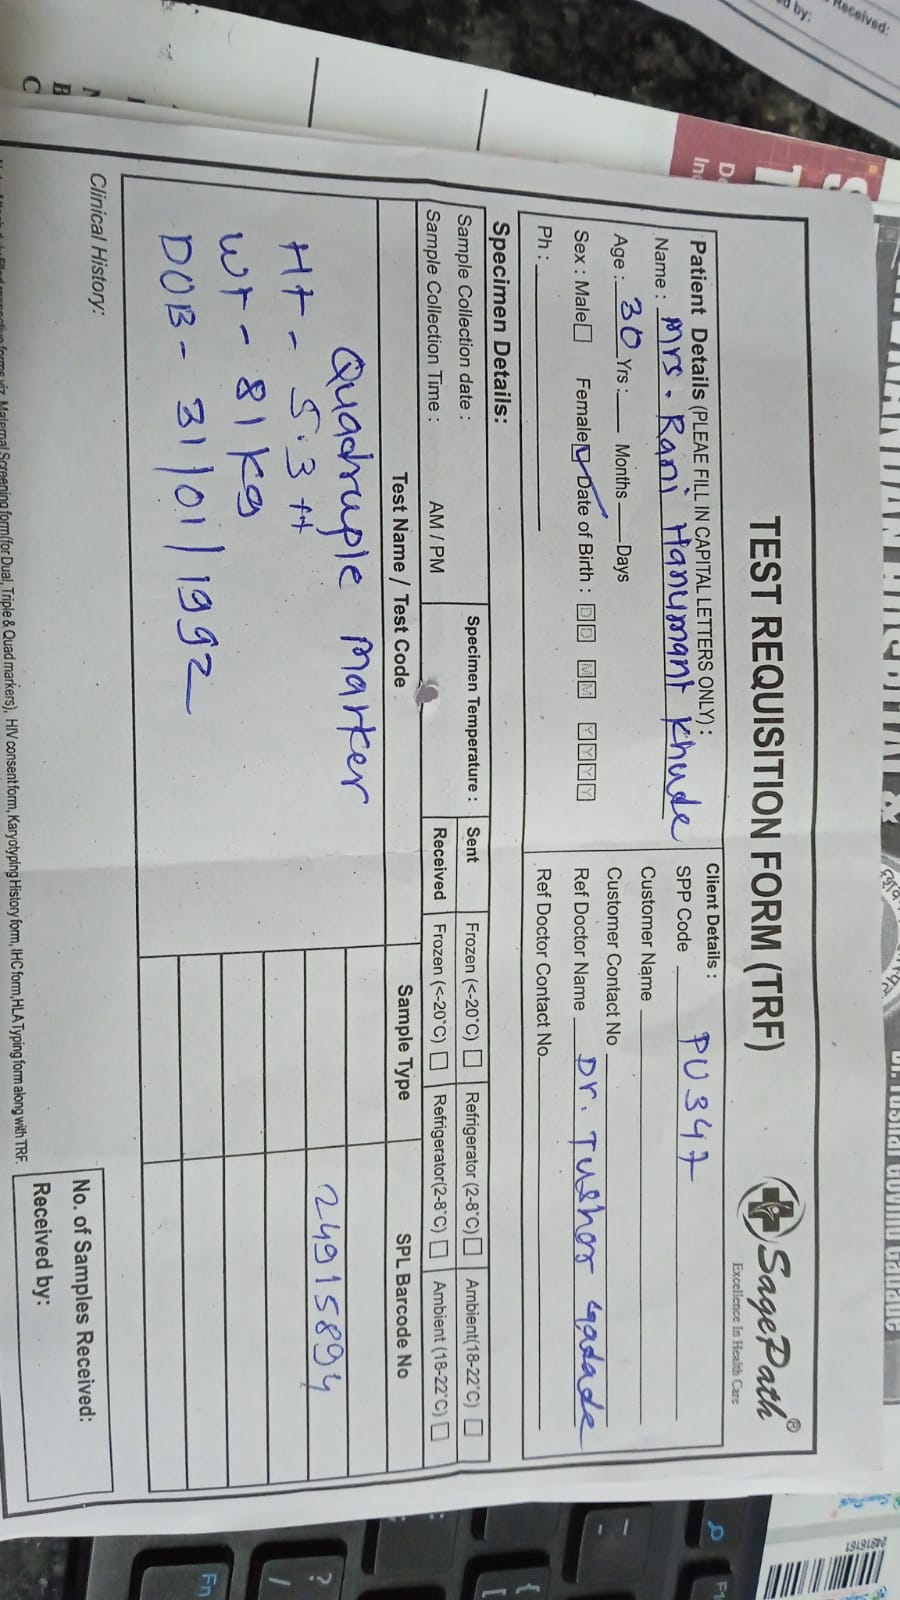 TEST REQUISITION FORM (TRF)
SagePath®
Excellence In Health Care
Patient Details (PLEAE FILL IN CAPITAL LETTERS ONLY) :
Name : Mrs. Rani Hanumant Khude
Age : 30 Yrs : Months Days
Sex : Male Female Date of Birth : DD MM YYYY
Ph :
Client Details :
SPP Code PU347
Customer Name
Customer Contact No
Ref Doctor Name Dr. Tushar Gadade
Ref Doctor Contact No.
Specimen Details:
Sample Collection date :
Sample Collection Time : AM / PM
Specimen Temperature : Sent Frozen (<-20°C) Refrigerator (2-8°C) Ambient(18-22°C)
Received Frozen (<-20°C) Refrigerator(2-8°C) Ambient (18-22°C)
Test Name / Test Code Sample Type SPL Barcode No
Quadruple marker 24915894
Ht - 5.3 ft
wt - 81 kg
DOB - 31/01/1992
Clinical History:
No. of Samples Received:
Received by:
Maternal Screening form(for Dual, Triple & Quad markers), HIV consent form, Karyotyping History form, IHC form, HLA Typing form along with TRF.
Received:
Fn